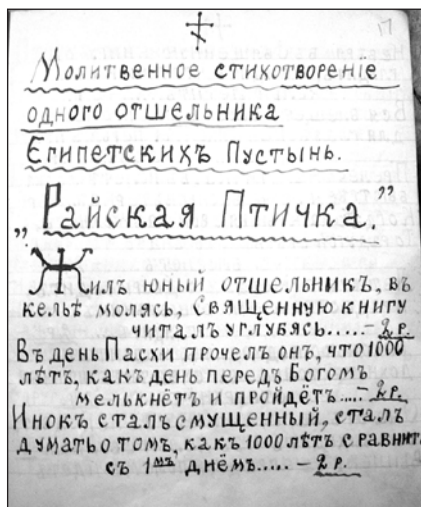 17
Молитвенное стихотворенiе
одного отшельника
Египетскихъ Пустынь.
„Райская Птичка.”
Жилъ юный отшельникъ, въ
кельѣ молясь, Священную книгу
читалъ углубясь.....– 2 р.
Въ день Пасхи прочелъ онъ, что 1000
лѣтъ, какъ день передъ Богомъ
мелькнётъ и пройдётъ.....– 2 р.
Инокъ сталъ смущенный, сталъ
думать о томъ, какъ 1000 лѣтъ сравнит.
съ 1мъ днёмъ.....– 2 р.